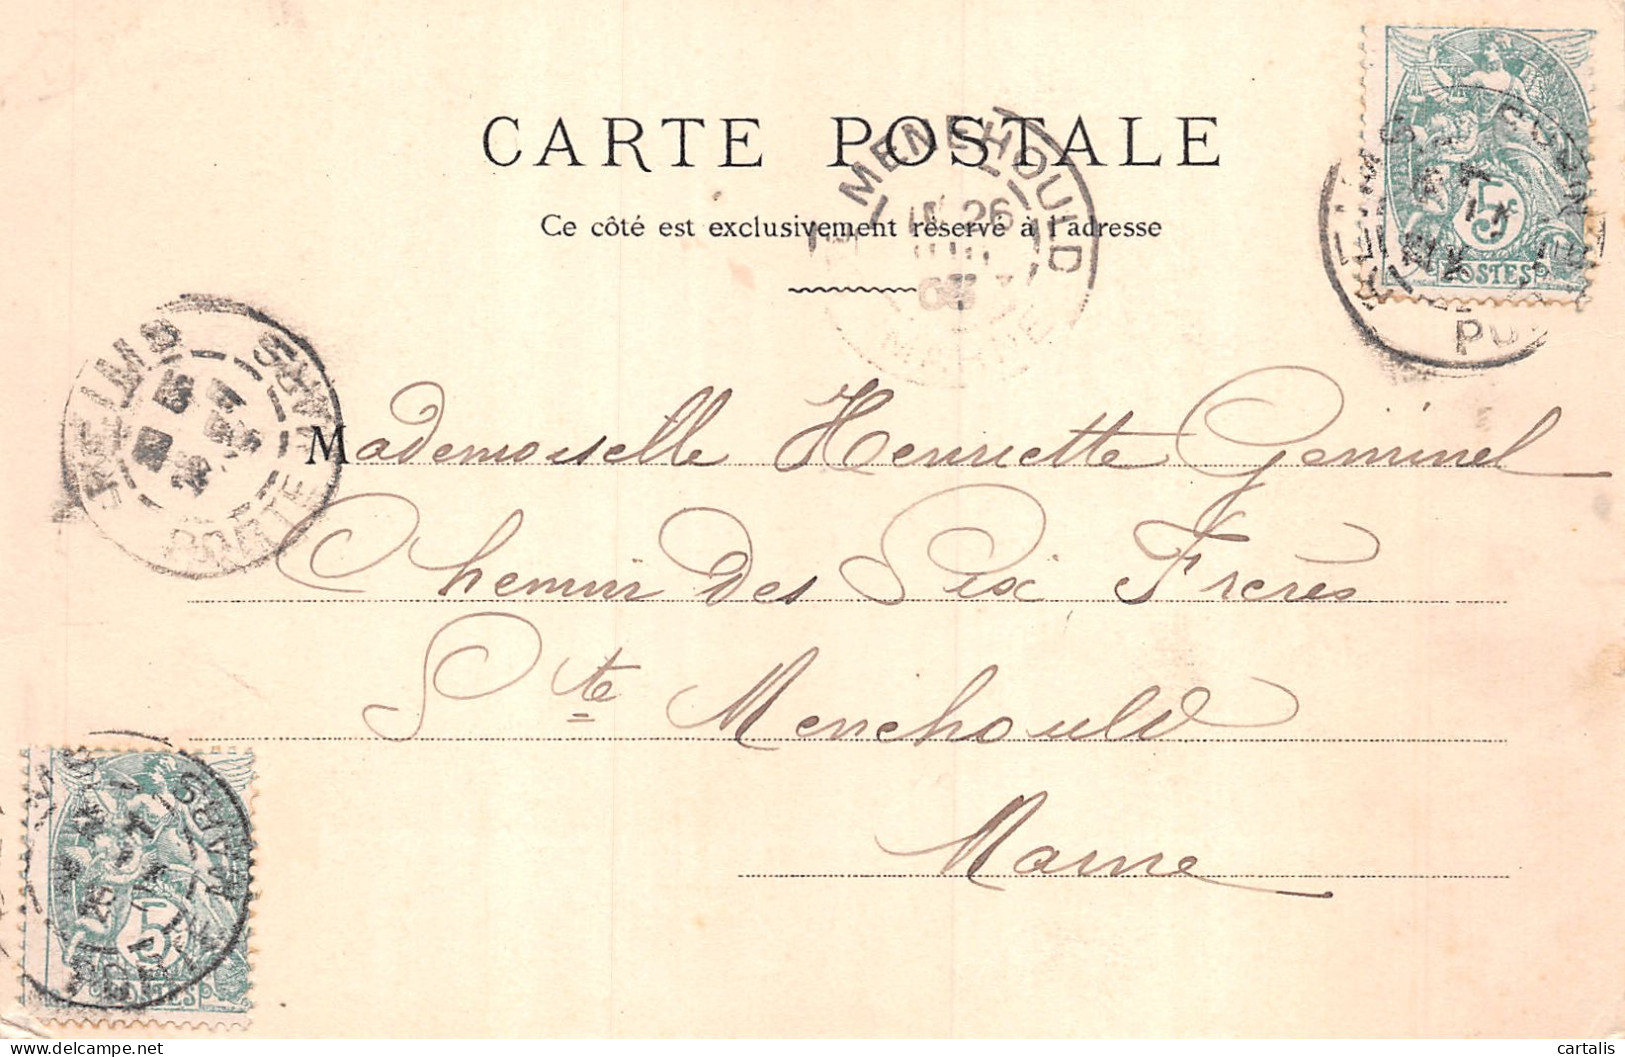 CARTE POSTALE
Ce côté est exclusivement réservé à l'adresse
MENEHOULD
26
MARNE
REIMS
PORTE MARS
5c
POSTES
Mademoiselle Henriette Geminel
Chemin des Six Frères
Ste Menehould
Marne
MARS
25
5c
POSTES
delcampe.net
cartalis